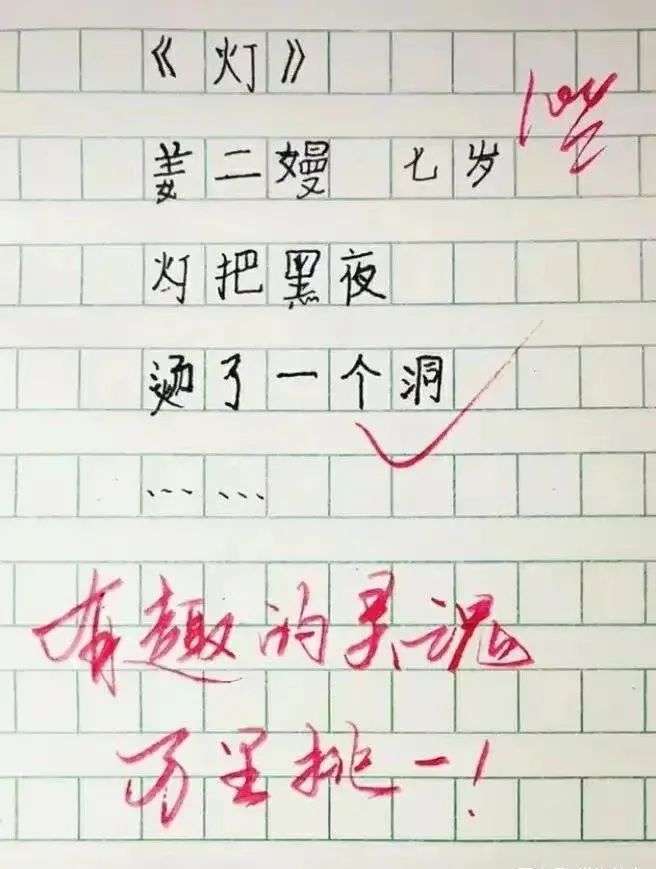 《灯》
100
姜二嫚 七岁
灯把黑夜
烫了一个洞
……
有趣的灵魂
万里挑一！